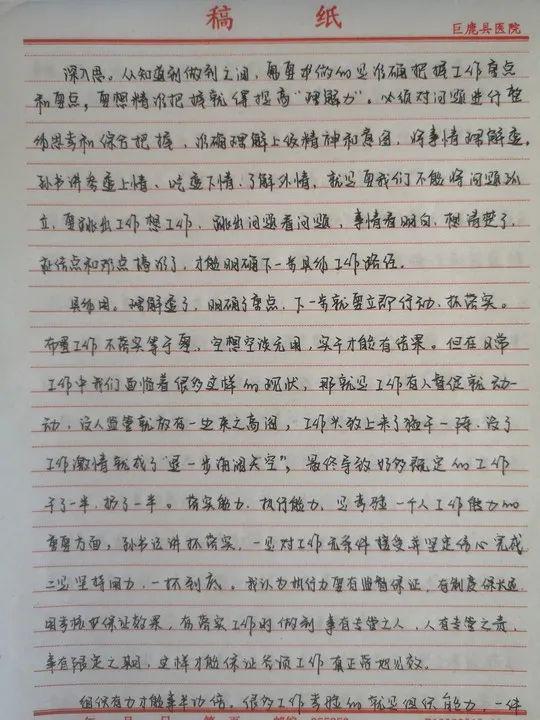 稿 纸
巨鹿县医院
深入思。从知道到做到之间，需要我们做的是准确把握工作重点
和要点，要想精准把握就得提高"理解力"。必须对问题进行整
体思考和综合把握，准确理解上级精神和意图，将事情理解透。
孙书讲吃透上情、吃透下情、了解外情，就是要我们不能将问题孤
立，要跳出工作想工作，跳出问题看问题，事情看明白，想清楚了，
症结点和难点搞准了，才能明确下一步具体工作路径。
具体用。理解透了，明确了重点，下一步就要立即行动、抓落实。
布置工作不落实等于零，空想空谈无用，实干才能有结果。但在日常
工作中我们面临着很多这样的现状，那就是工作有人督促就动一
动，没人监管就放在一边束之高阁，工作头放上来了猛干一阵，没了
工作激情就成了"退一步海阔天空"，最终导致好多既定的工作
干了一半，扔了一半。落实能力、执行能力，是考验一个人工作能力的
重要方面，孙书记讲抓落实，一是对工作无条件接受并坚定信心完成
二是坚持用力，一抓到底。我认为执行力要有监督保证，有制度保
用考核 保证效果，在落实工作时做到事有专管之人，人有专管之责，
事有限定之期，这样才能保证各项工作真正落地见效。
组织有力才能事半功倍。很多工作考验的就是组织能力，一件